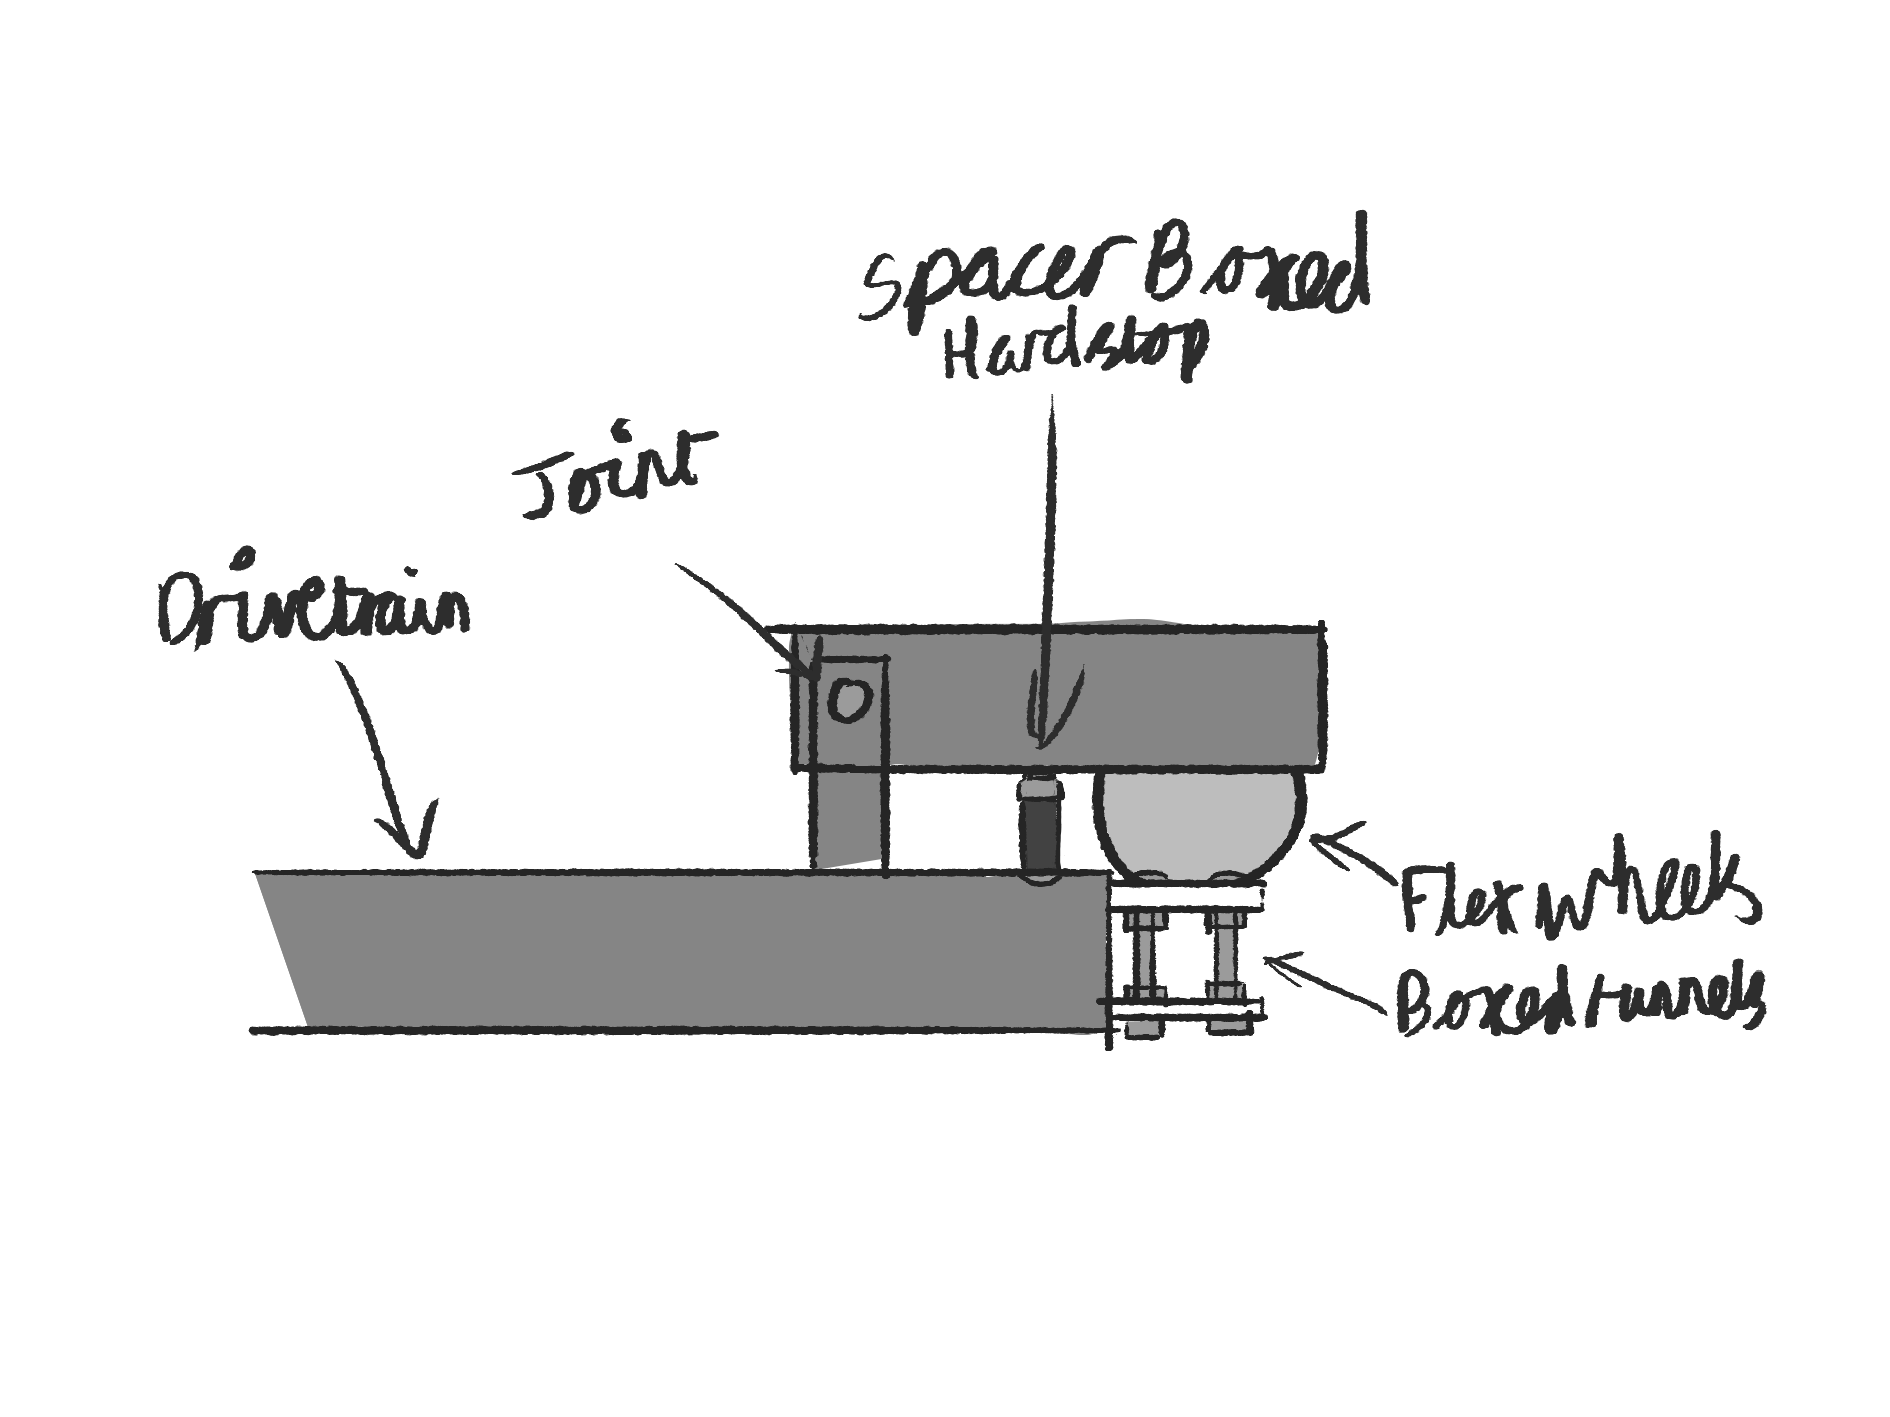 Spacer Boxed
Hardstop
Joint
Drivetrain
Flex wheels
Boxed tunnels